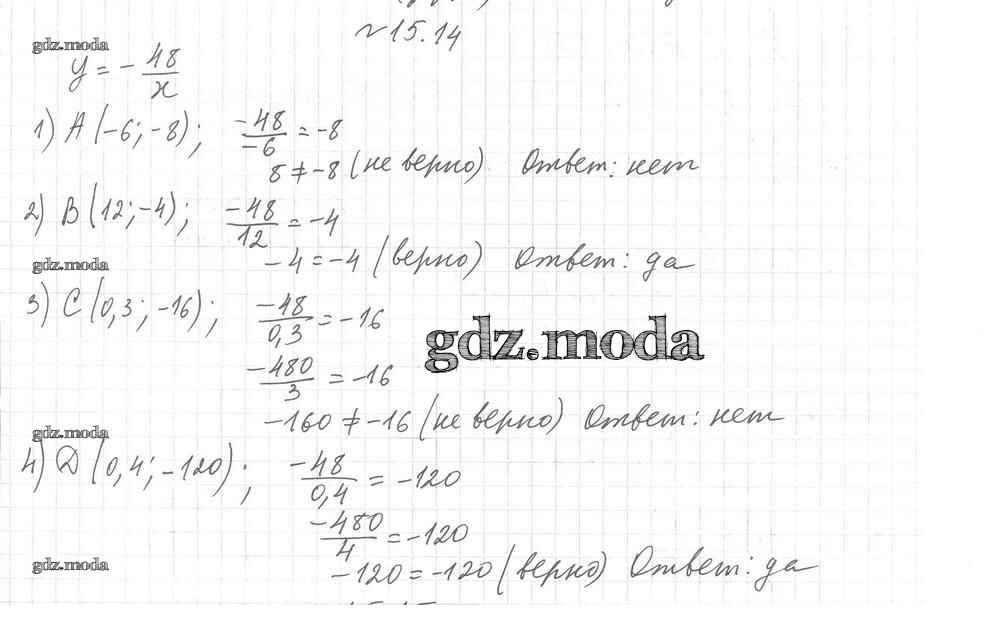 №15.14
gdz.moda
y = - 48/x
1) A(-6; -8); -48/-6 = -8
8 ≠ -8 (не верно). Ответ: нет
2) B(12; -4); -48/12 = -4
-4 = -4 (верно) Ответ: да
gdz.moda
3) C(0,3; -16); -48/0,3 = -16
gdz.moda
-480/3 = -16
-160 ≠ -16 (не верно) Ответ: нет
gdz.moda
4) D(0,4; -120); -48/0,4 = -120
-480/4 = -120
gdz.moda
-120 = -120 (верно) Ответ: да